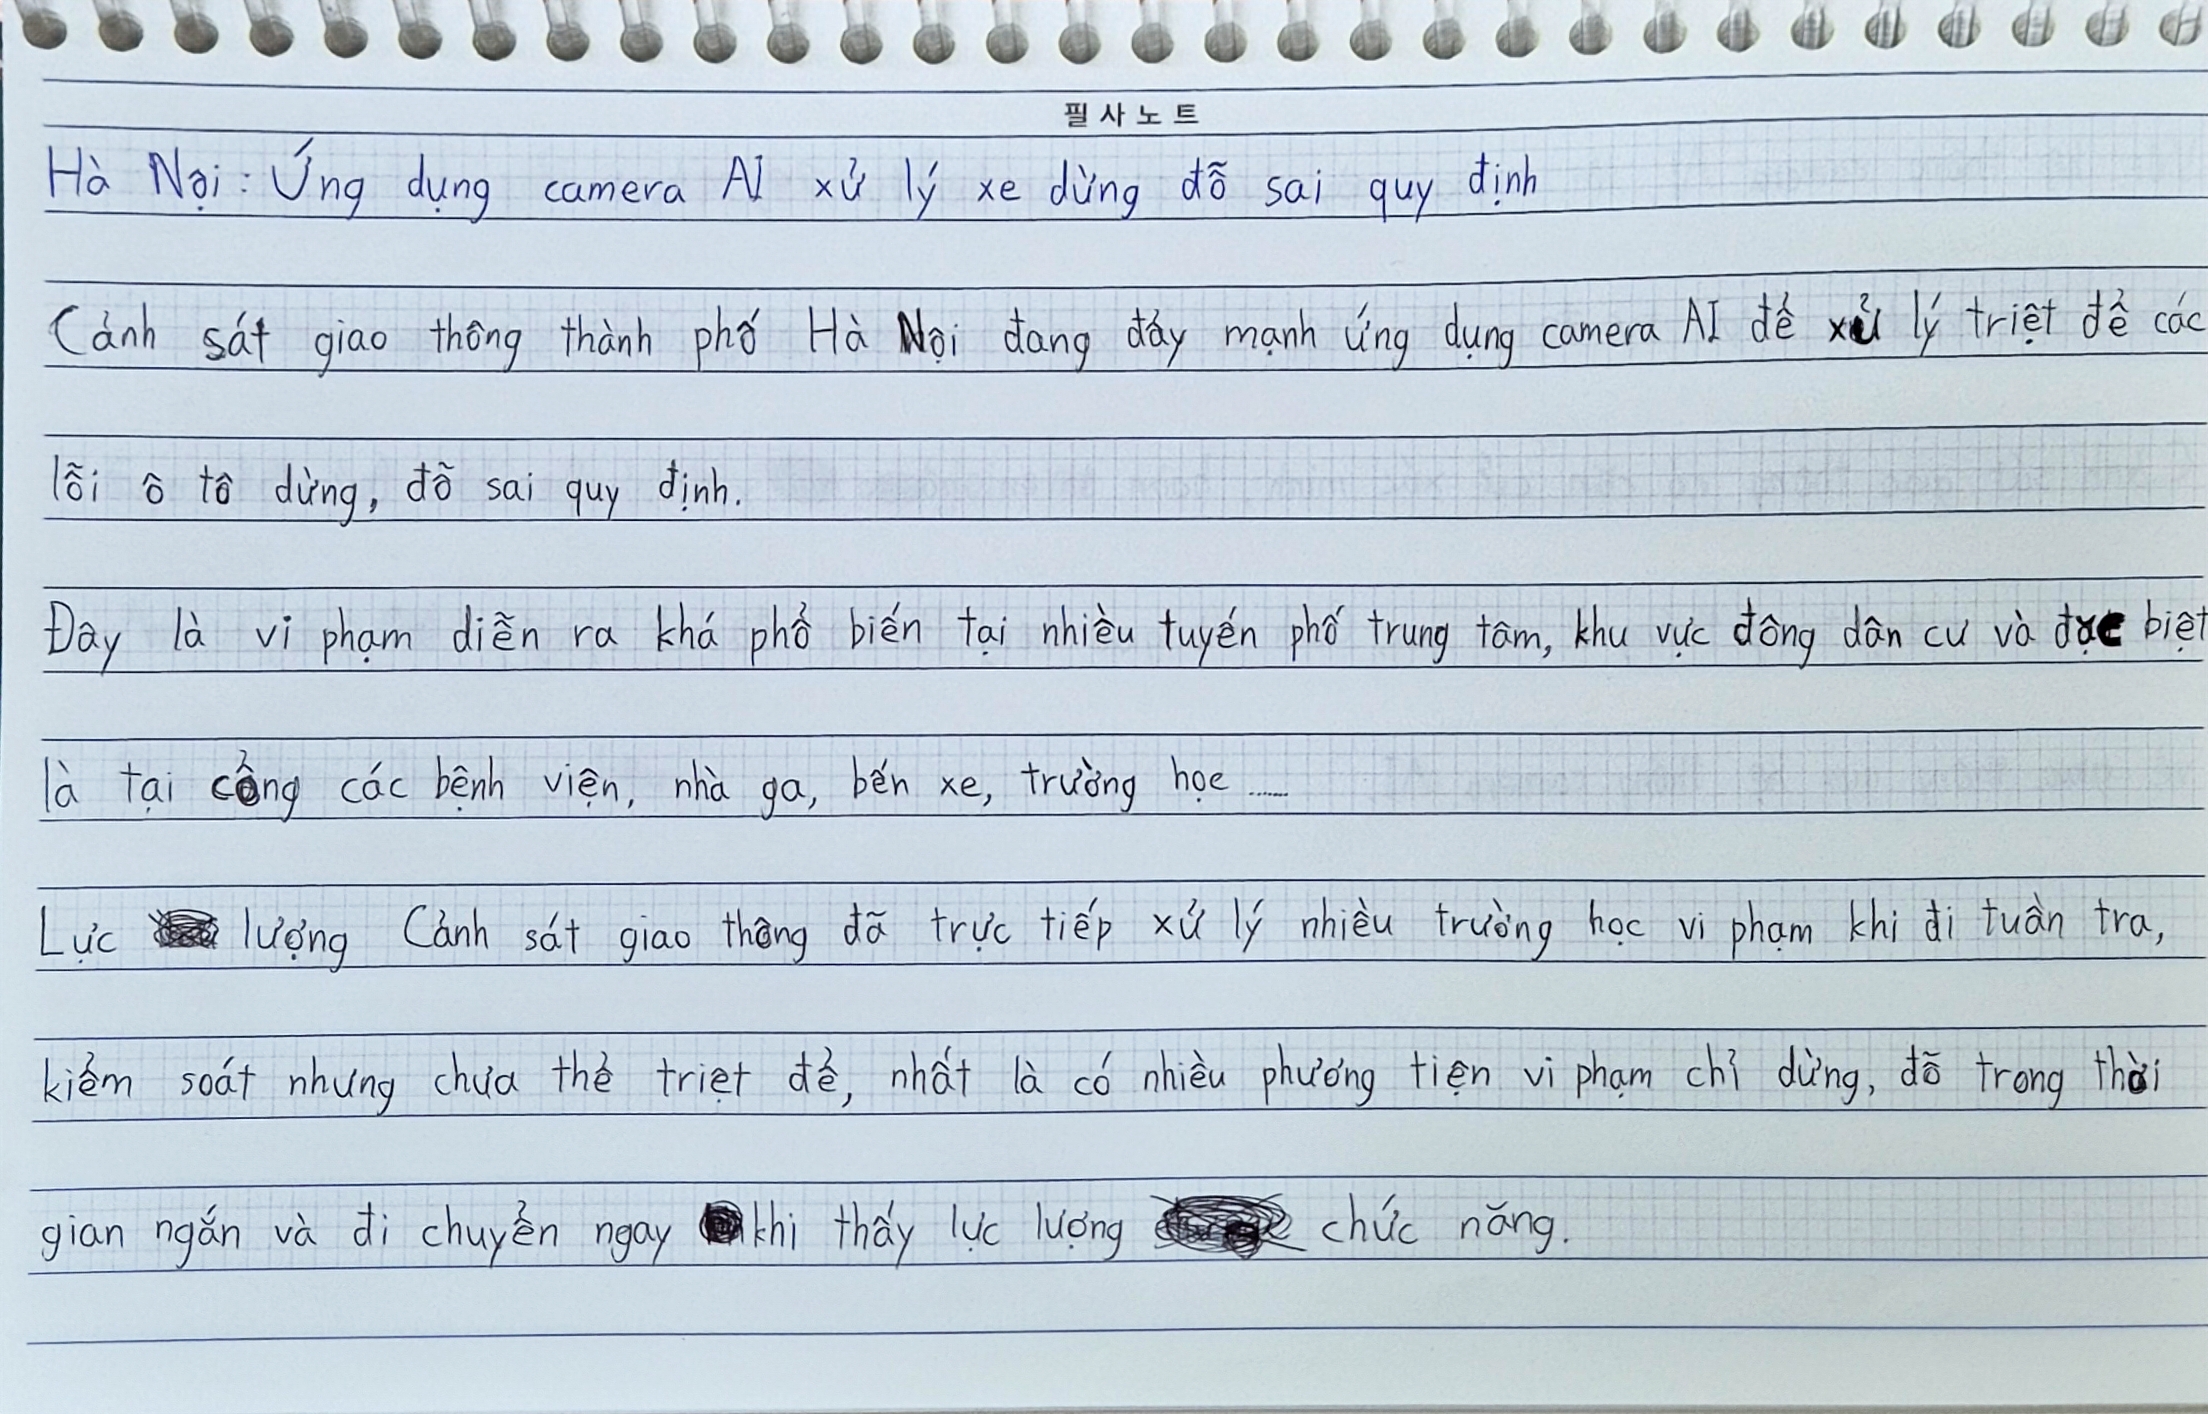 필사노트
Hà Nội: Ứng dụng camera AI xử lý xe dừng đỗ sai quy định
Cảnh sát giao thông thành phố Hà Nội đang đẩy mạnh ứng dụng camera AI để xử lý triệt để các
lỗi ô tô dừng, đỗ sai quy định.
Đây là vi phạm diễn ra khá phổ biến tại nhiều tuyến phố trung tâm, khu vực đông dân cư và đặc biệt
là tại cổng các bệnh viện, nhà ga, bến xe, trường học ......
Lực lượng Cảnh sát giao thông đã trực tiếp xử lý nhiều trường học vi phạm khi đi tuần tra,
kiểm soát nhưng chưa thể triệt để, nhất là có nhiều phương tiện vi phạm chỉ dừng, đỗ trong thời
gian ngắn và di chuyển ngay khi thấy lực lượng chức năng.